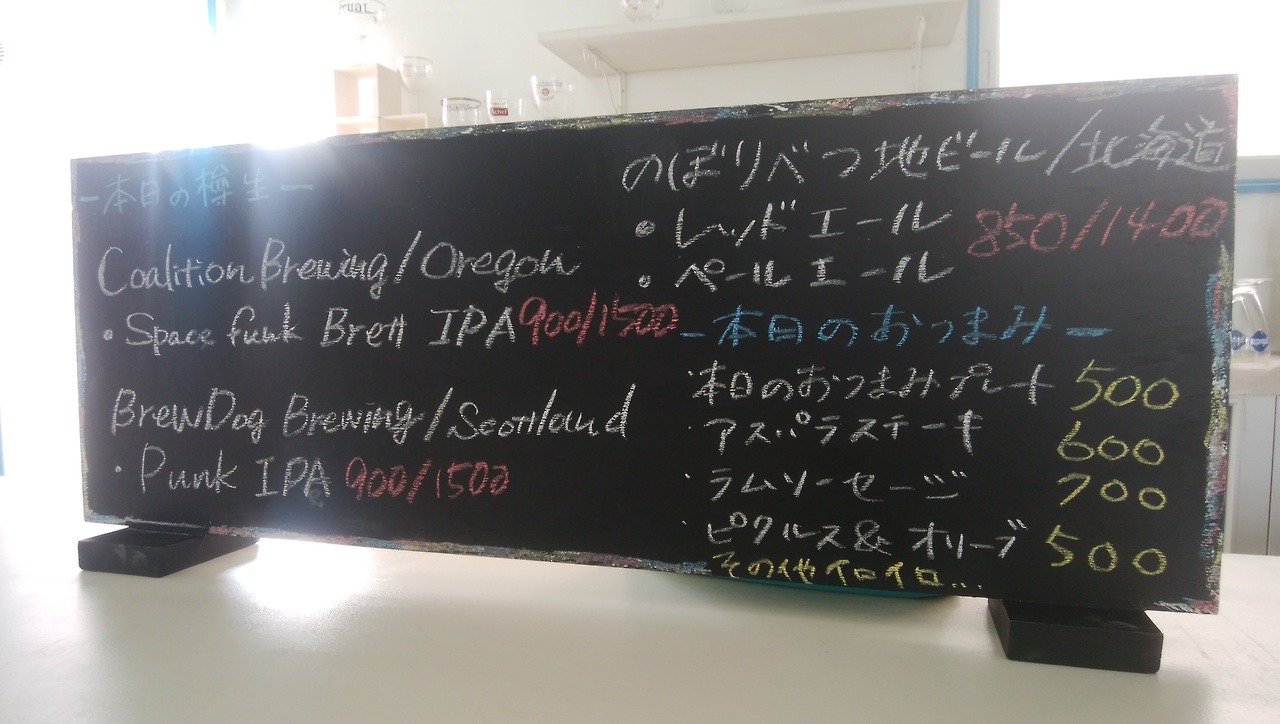 ー本日の樽生ー
Coalition Brewing/Oregon
・Space funk Brett IPA 900/1500
BrewDog Brewing/Scotland
・Punk IPA 900/1500
のぼりべつ地ビール/北海道
・レッドエール 850/1400
・ペールエール
ー本日のおつまみー
・本日のおつまみプレート 500
・アスパラステーキ 600
・ラムソーセージ 700
・ピクルス&オリーブ 500
その他イロイロ...
Achel